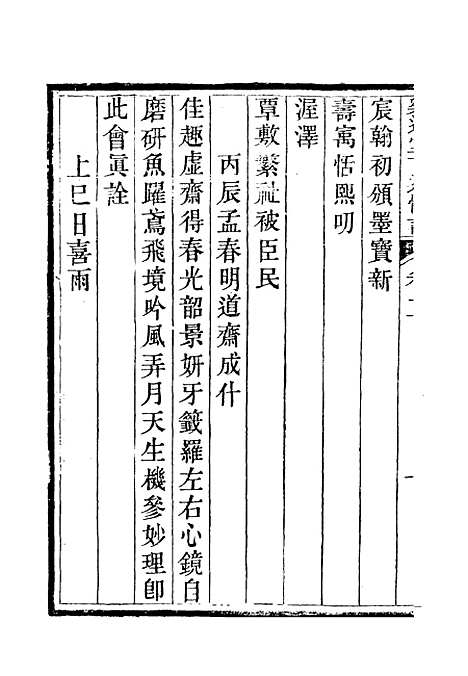 宸翰初頒墨寶新
壽㝢恬熙叨
渥澤
覃敷繁祉被臣民
丙辰孟春明道齋成什
佳趣虛齋得春光韶景妍牙籤羅左右心鏡自
磨研魚躍鳶飛境吟風弄月天生機參妙理卽
此會眞詮
上巳日喜雨